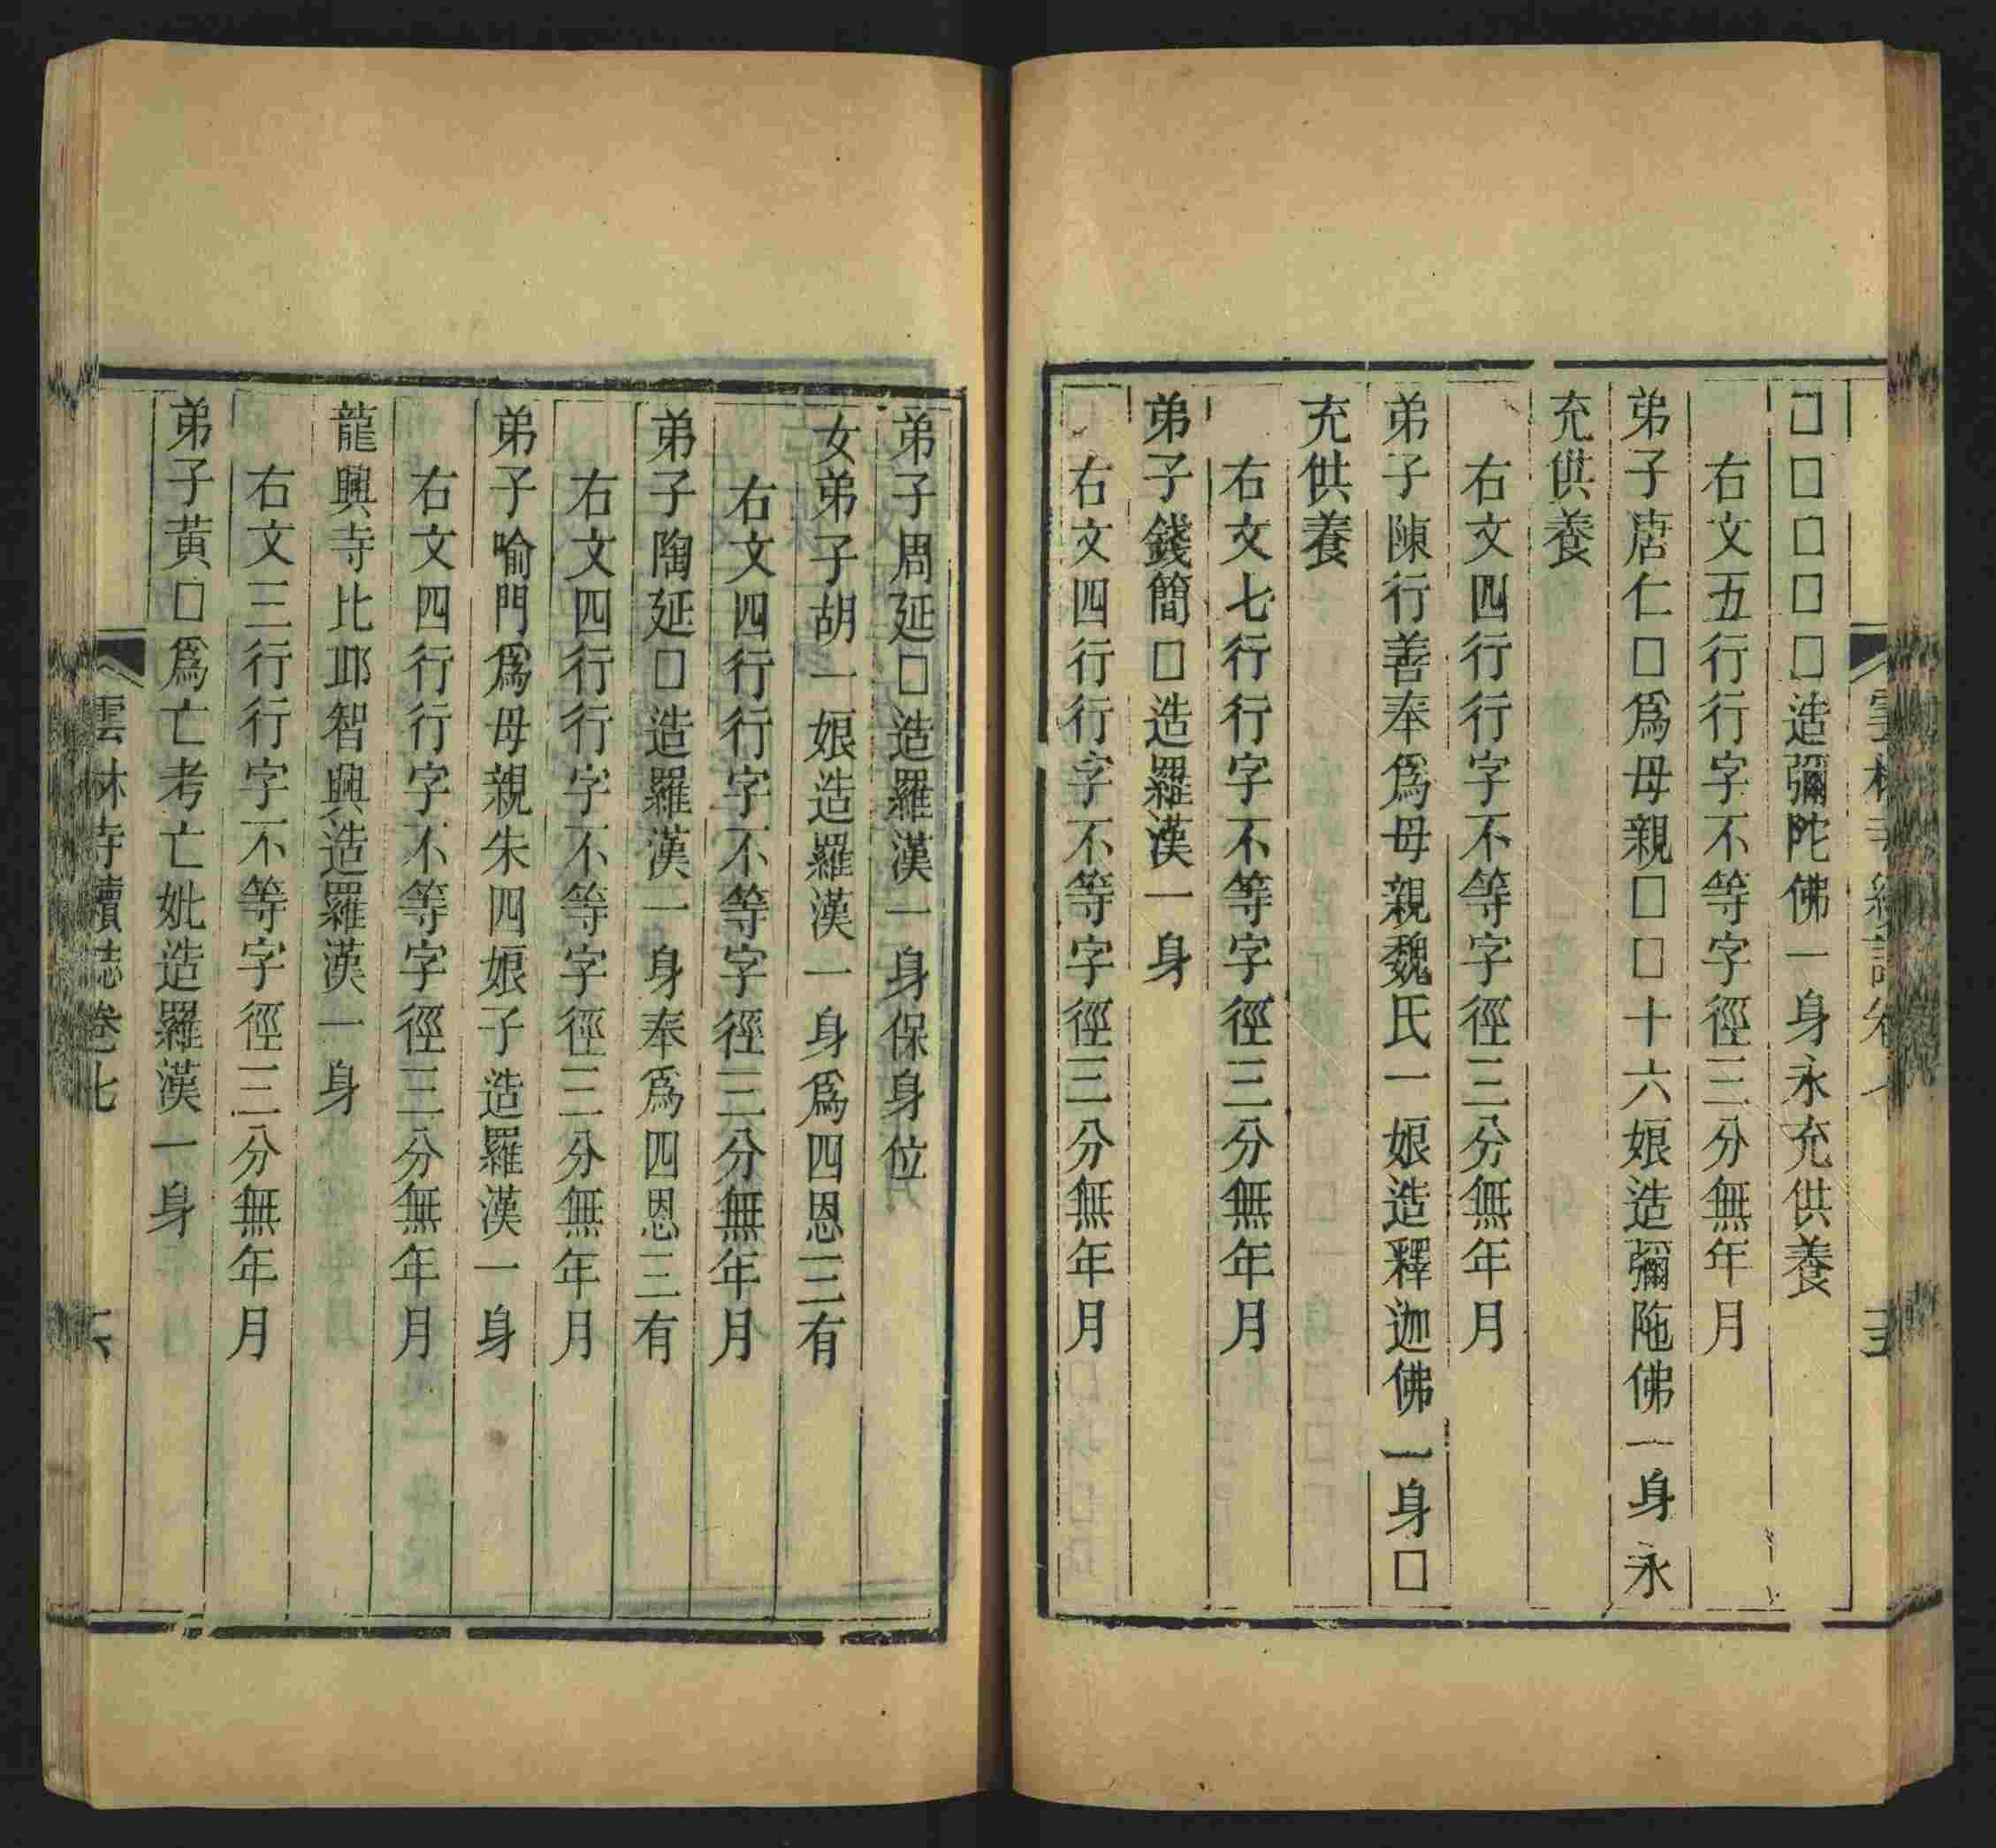 □□□□□造彌陀佛一身永充供養
右文五行行字不等字徑三分無年月
弟子唐仁□爲母親□□十六娘造彌陁佛一身永
充供養
右文四行行字不等字徑三分無年月
弟子陳行善奉爲母親魏氏一娘造釋迦佛一身□
充供養
右文七行行字不等字徑三分無年月
弟子錢簡□造羅漢一身
右文四行行字不等字徑三分無年月
弟子周延□造羅漢一身保身位
女弟子胡一娘造羅漢一身爲四恩三有
右文四行行字不等字徑三分無年月
弟子陶延□造羅漢一身奉爲四恩三有
右文四行行字不等字徑三分無年月
弟子喻門爲母親朱四娘子造羅漢一身
右文四行行字不等字徑三分無年月
龍興寺比邱智興造羅漢一身
右文三行行字不等字徑三分無年月
弟子黃□爲亡考亡妣造羅漢一身
雲林寺續誌卷七 六